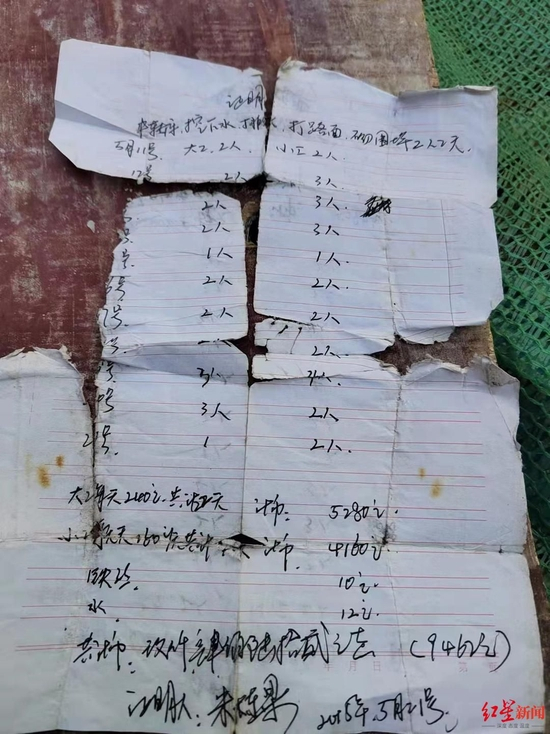 证明
挖下水, 打路面, 砌围墙2人2天.
5月11号 大工 2人 小工 2人
12号 2人 3人
2人 3人
号 2人 3人
号 1人 1人
号 2人 2人
号 2人 2人
号 2人
号 3人
号 3人 2人
21号 1 2人
大工每天240元. 共计22天 计币: 5280元
小工每天160元共计 计币: 4160元
10元
水. 12元
共币: 玖仟肆佰陆拾贰元 (9462元)
证明人: 朱 5月21号.
红星新闻